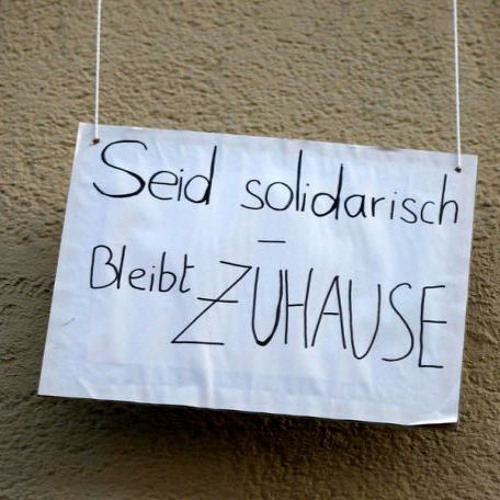 Seid solidarisch
–
Bleibt ZUHAUSE